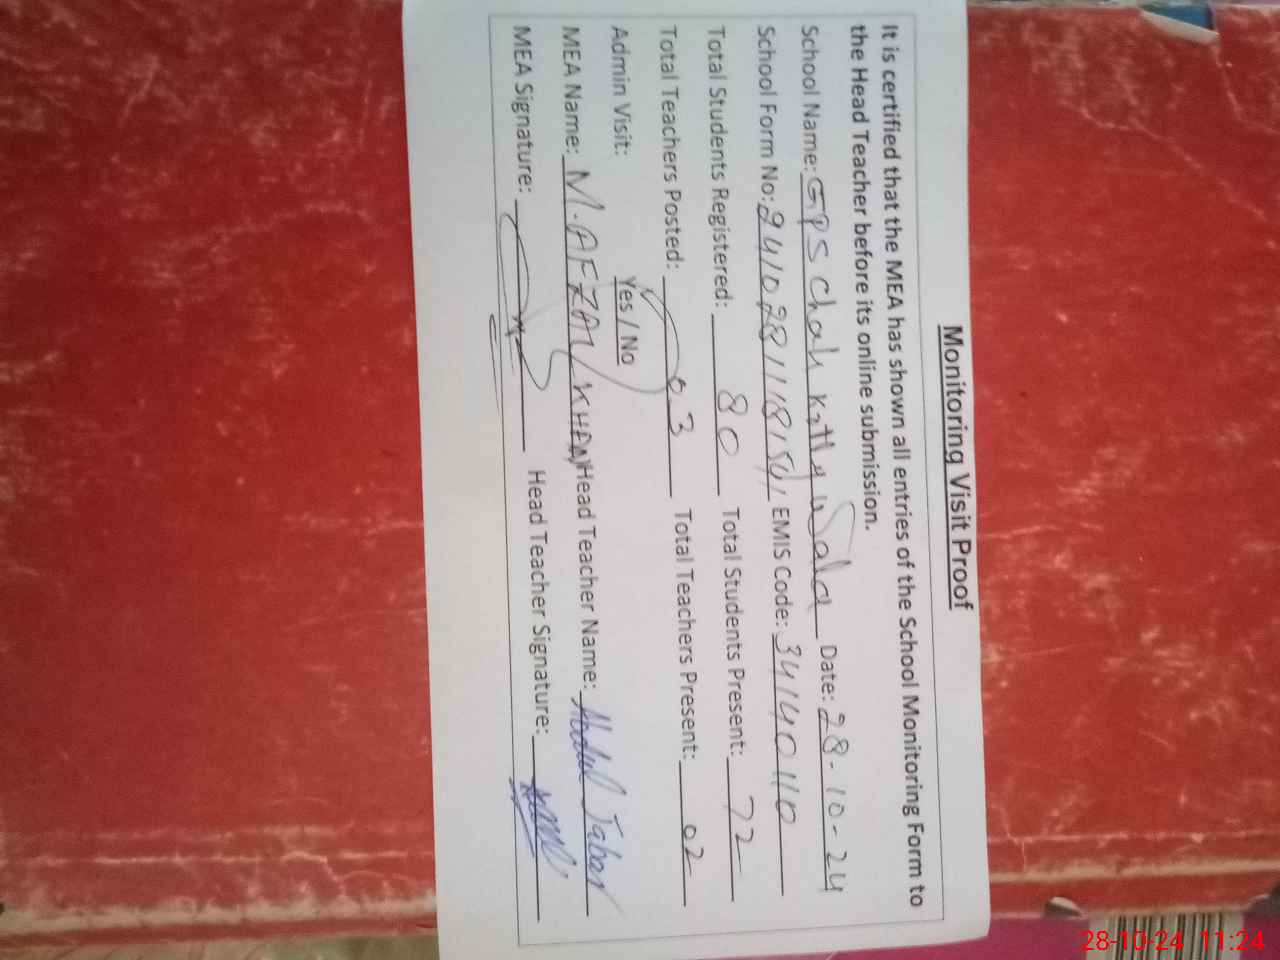 Monitoring Visit Proof
It is certified that the MEA has shown all entries of the School Monitoring Form to
the Head Teacher before its online submission.
School Name: GPS Chah Kotly Wala Date: 28-10-24
School Form No: EMIS Code: 34140110
Total Students Registered: 80 Total Students Present: 72
Total Teachers Posted: 03 Total Teachers Present: 02
Admin Visit: Yes / No
MEA Name: M. AFZAL KHAN Head Teacher Name: Abdul Jabar
MEA Signature: Head Teacher Signature:
28-10-24 11:24